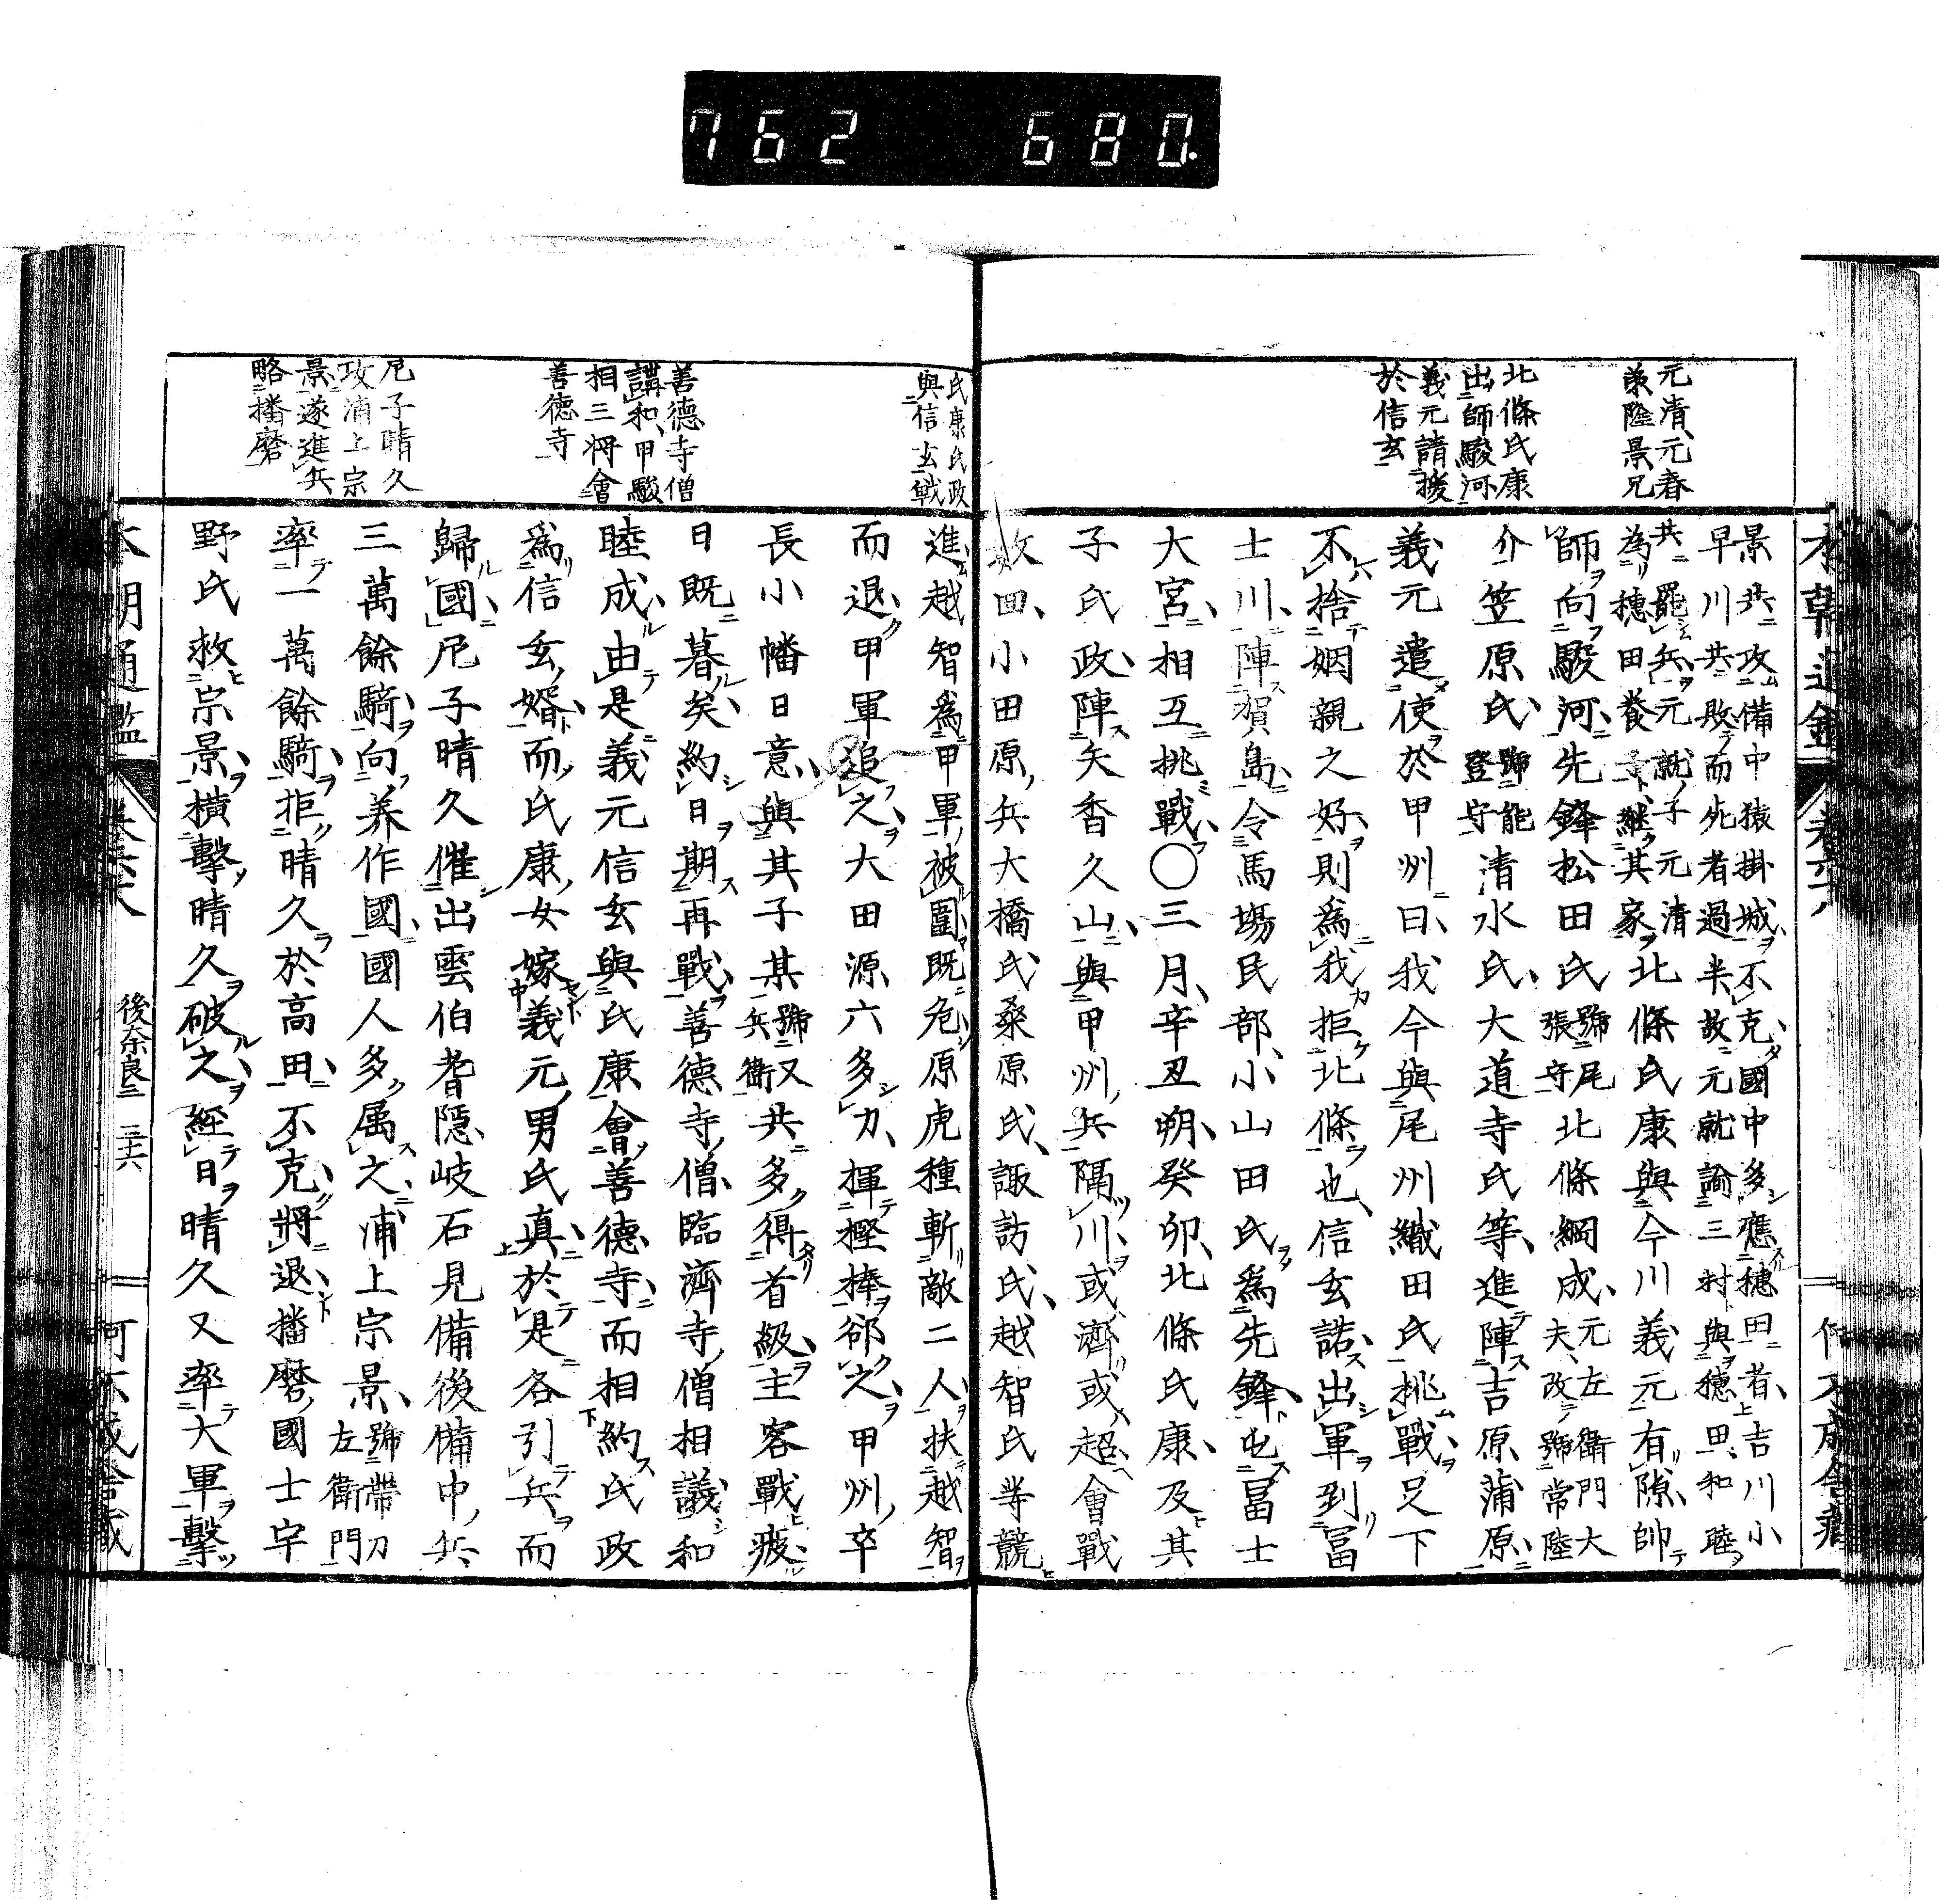 762 680.
元清元春
兼隆景兄
北條氏康
出師駿河
義元請援
於信玄
景共攻備中猿掛城不克國中多應穗田者吉川小
早川共敗而死者過半故元就諭三村與穗田和睦
共罷兵元就子元清
為穗田養子継其家北條氏康與今川義元有隙帥
師向駿河先鋒松田氏號尾張守北條綱成元左衛門大夫改號常陸
介笠原氏號能登守清水氏大道寺氏等進陣吉原蒲原
義元遣使於甲州曰我今與尾州織田氏挑戰足下
不捨姻親之好則為我拒北條也信玄諾出軍到冨
士川陣賀島令馬塲民部小山田氏為先鋒屯冨士
大宮相互挑戰〇三月辛丑朔癸卯北條氏康及其
子氏政陣矢香久山與甲州兵隔川或濟或超會戰
小田原兵大橋氏桑原氏諏訪氏越智氏等競
氏康氏政
與信玄戦
善德寺僧
講和甲駿
相三将會
善德寺
尼子晴久
攻浦上宗
景遂進兵
略播磨
進越智為甲軍被圍既危原虎種斬敵二人扶越智
而退甲軍追之大田源六多力揮樫捧郤之甲州卒
長小幡日意與其子某號又兵衛共多得首級主客戰疲
日既暮矣約日期再戰善德寺僧臨濟寺僧相議和
睦成由是義元信玄與氏康會善德寺而相約氏政
為信玄婿而氏康女嫁義元男氏真於是各引兵而
歸國尼子晴久催出雲伯耆隱岐石見備後備中兵
三萬餘騎向美作國國人多属之浦上宗景號帶刀左衛門
率一萬餘騎拒晴久於高田不克將退播磨國士宇
野氏救宗景橫擊晴久破之経日晴久又率大軍擊
本朝通鑑 後奈良三 三十六